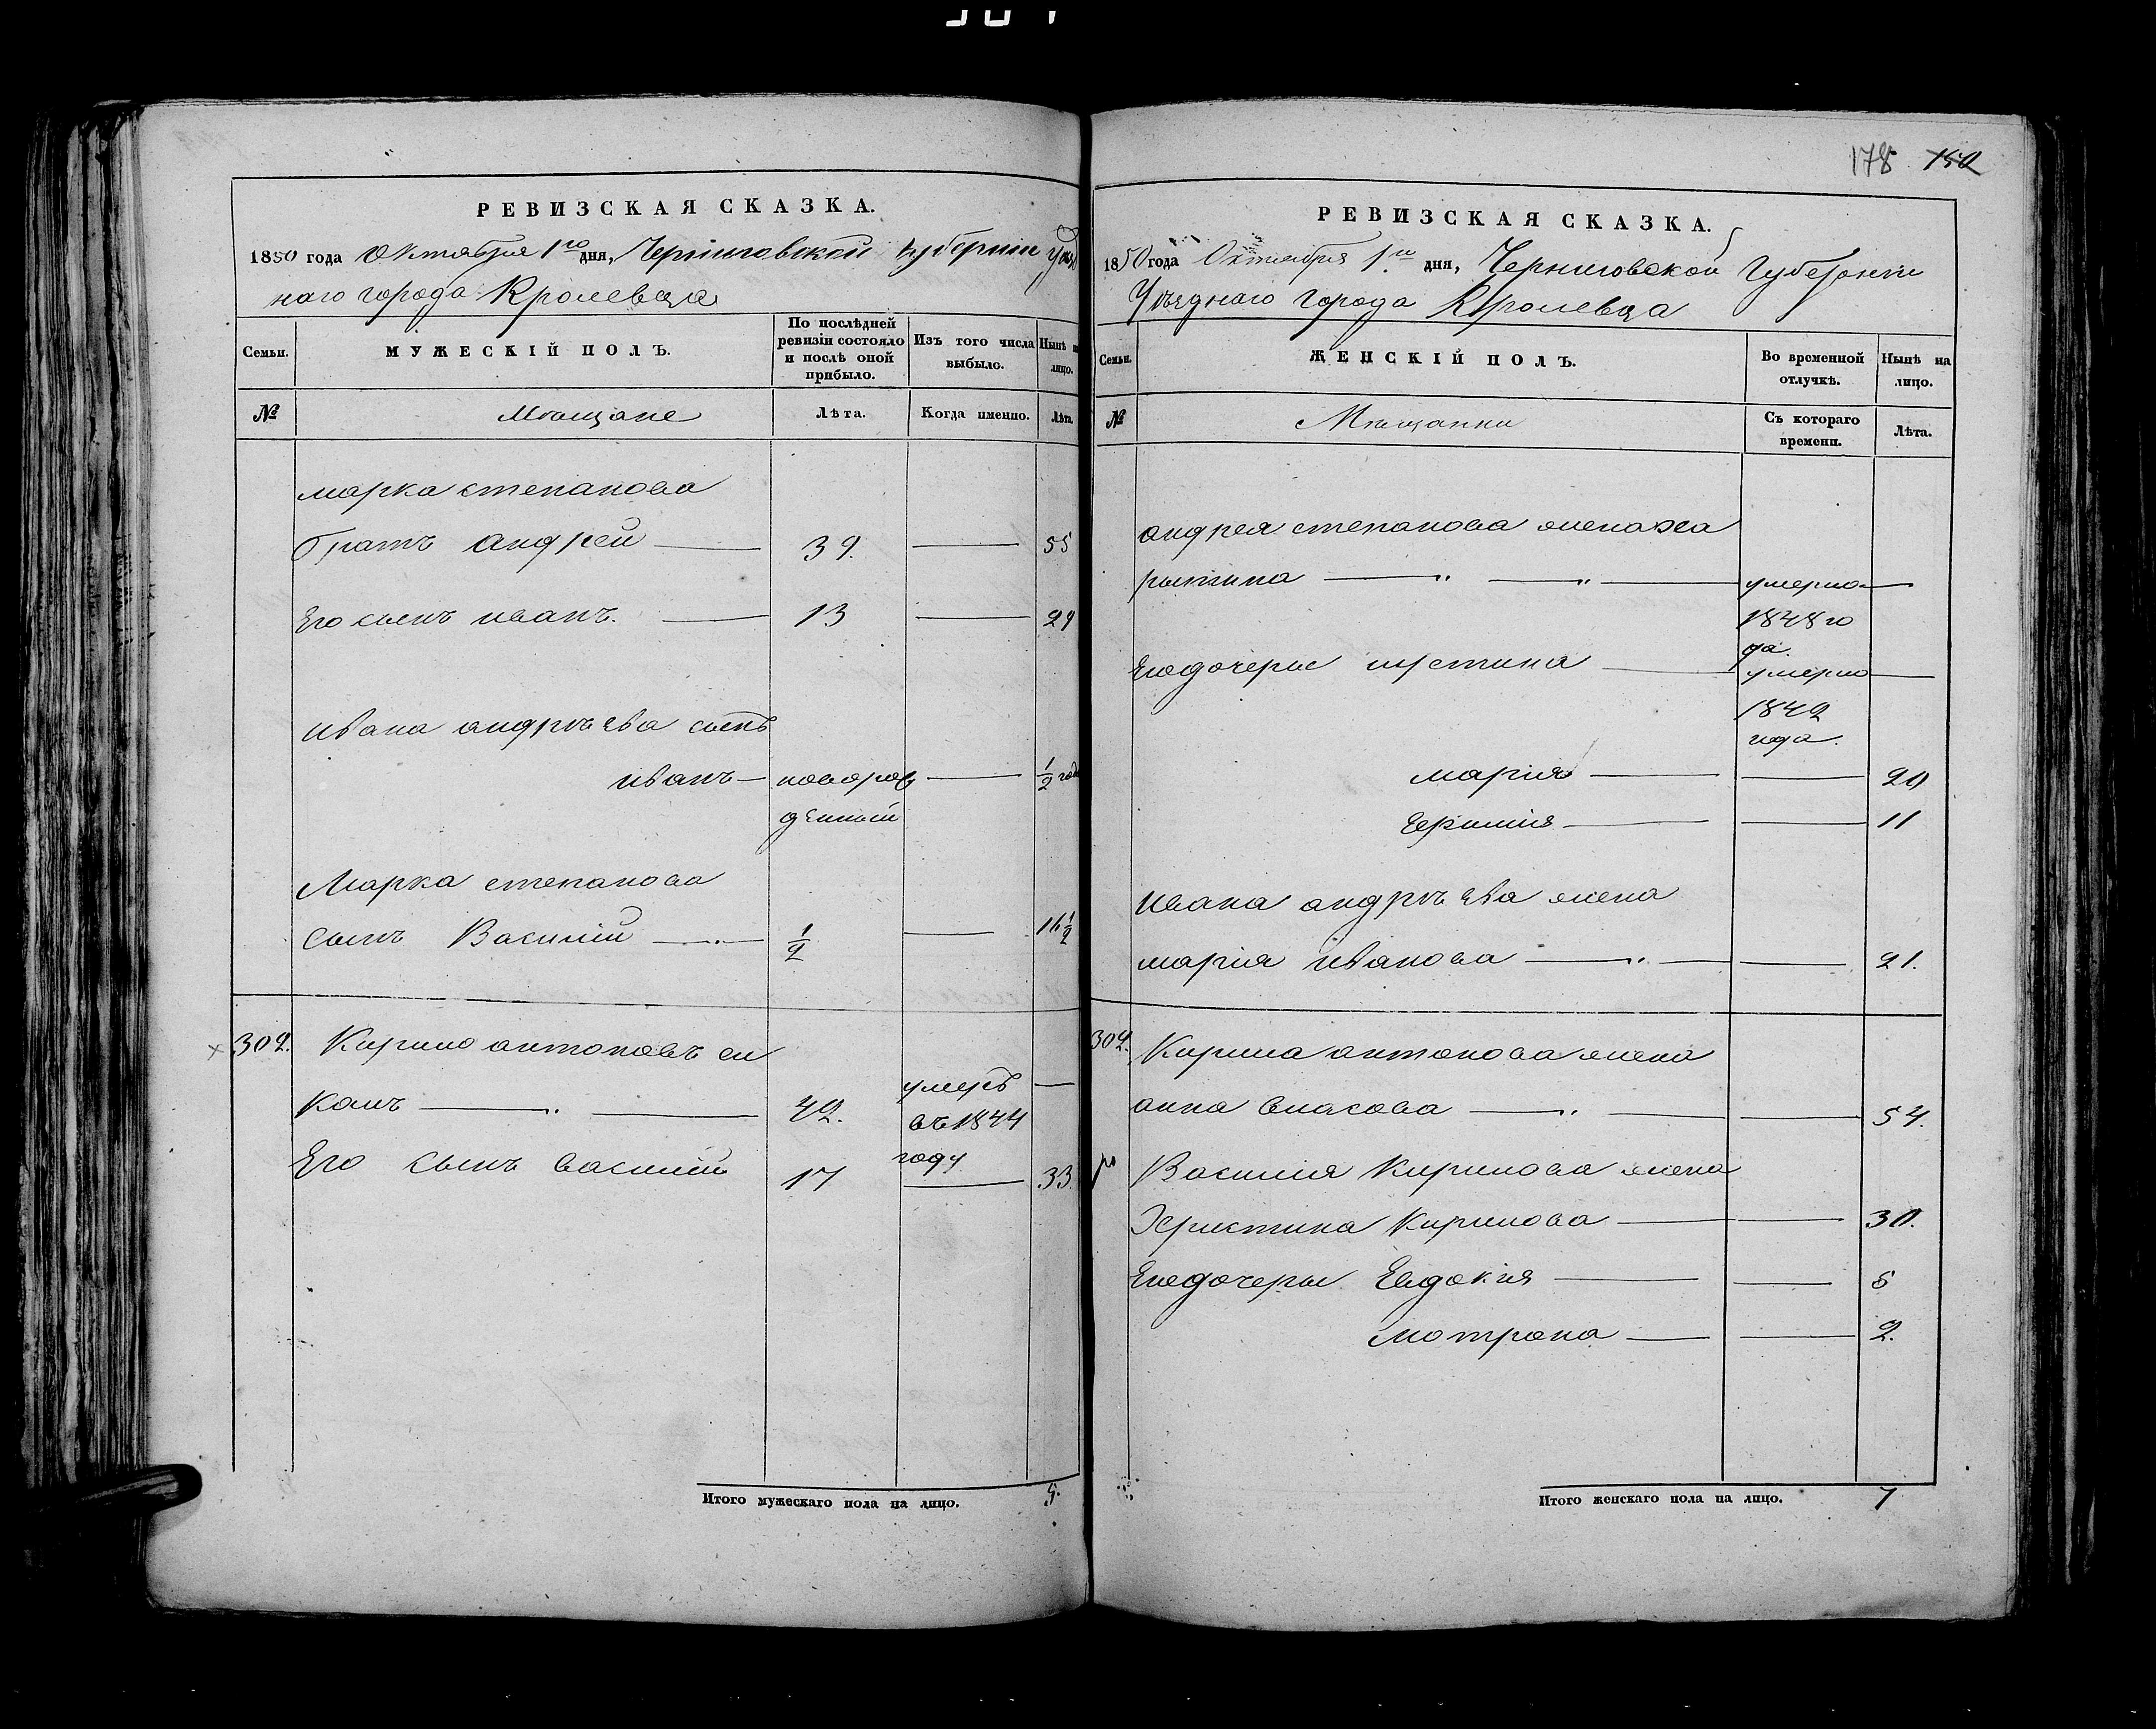 178 150
РЕВИЗСКАЯ СКАЗКА.
1850 года Октября 1го дня, Черниговской губернии Уѣзд
наго города Кролевца
Семьи.
МУЖЕСКІЙ ПОЛЪ.
По послѣдней ревизіи состояло и послѣ оной прибыло.
Изъ того числа выбыло.
Нынѣ на лицо.
№
Мѣщане
Лѣта.
Когда именно.
Лѣта.
Марка степанова
братъ андрей 39. 55
Его сынъ иванъ. 13 29
ивана андрѣева сынъ
иванъ новорож 1/2 года
денный
Марка степанова
сынъ Василий 1/2 16 1/2
302. Кирило антоновъ си
канъ 42. умеръ
въ 1844
году
Его сынъ василий 17 33.
Итого мужескаго пола на лицо. 5.
РЕВИЗСКАЯ СКАЗКА.
1850 года Октября 1го дня, Черниговской Губернии
Уѣзднаго города Кролевца
Семьи.
ЖЕНСКІЙ ПОЛЪ.
Во временной отлучкѣ.
Нынѣ на лицо.
№
Мѣщанки
Съ котораго времени.
Лѣта.
андрея степанова жена ха
ритина умерла
1848 го
да.
Егодочеры устина умерла
1842
года.
мария 20
11
ивана андрѣева жена
мария иванова 21.
302. Кирила антонова жена
анна власова 54.
Василия Кирилова жена
Христина Кирилова 30.
Егодочеры Евдокия 5
мотрона 2.
Итого женскаго пола на лицо. 7